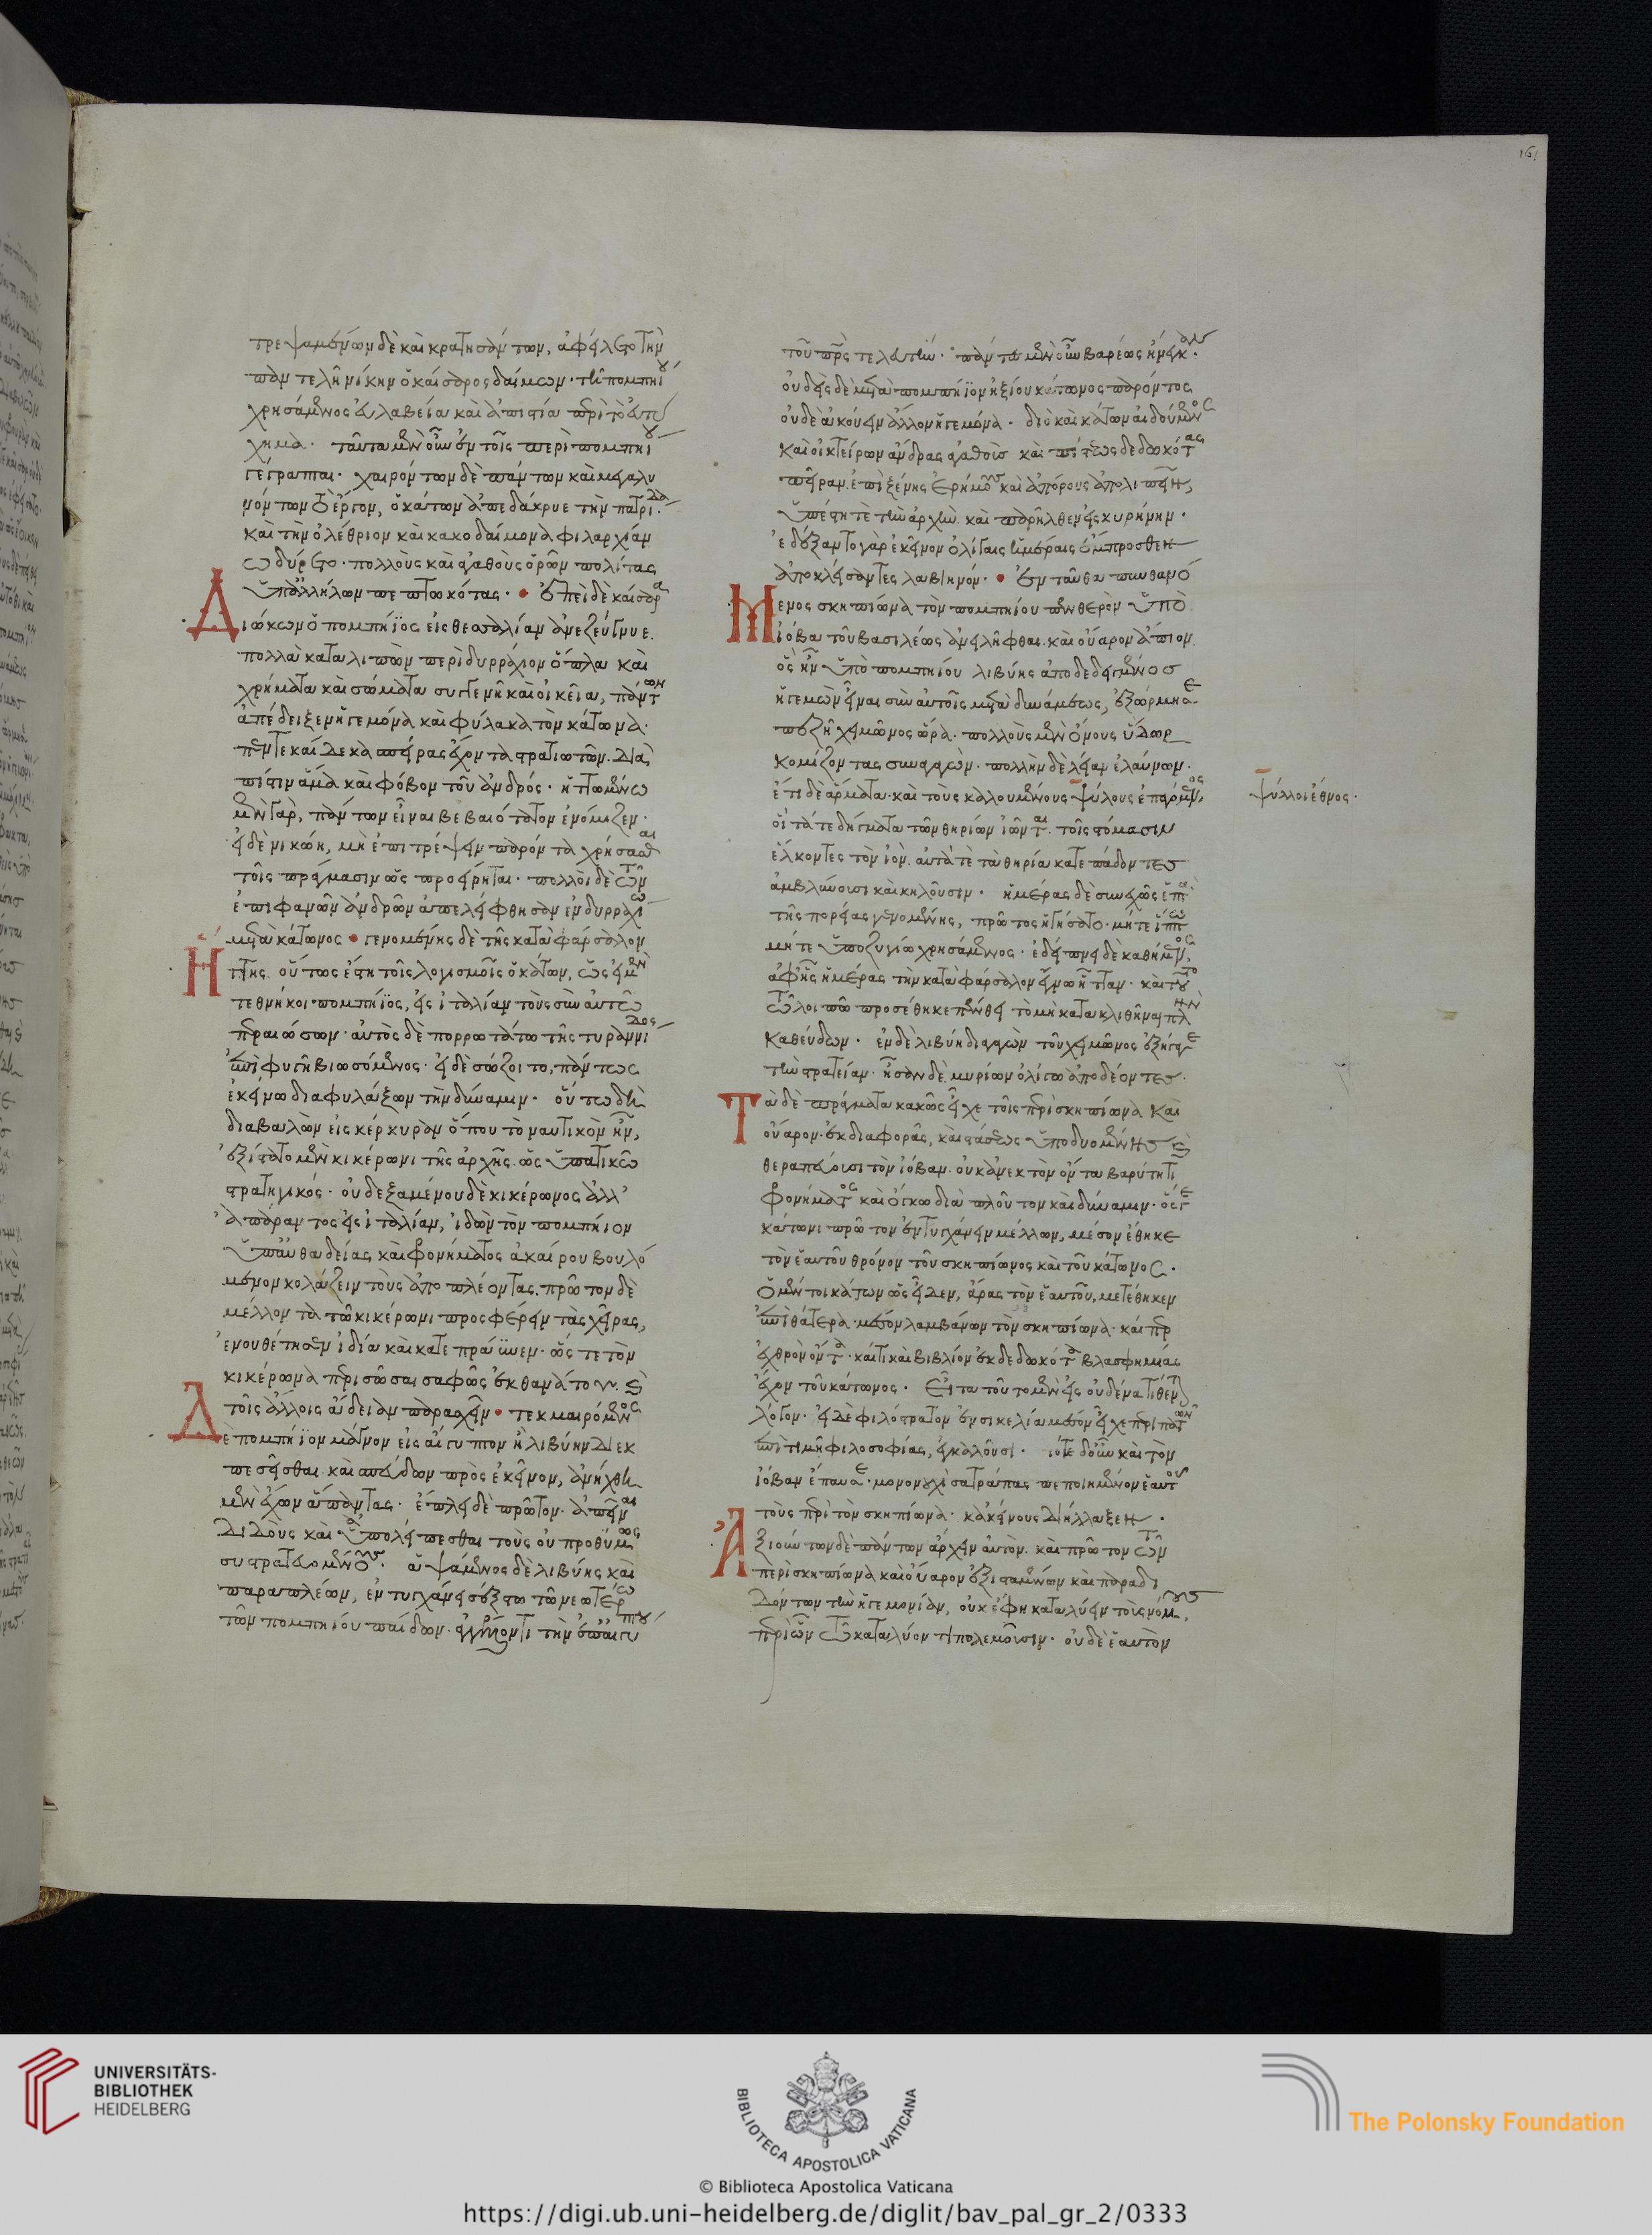 τρεψαμένων δὲ καὶ κρατησάντων, ἀφείλετο τὴν
παντελῆ νίκην ὁ καίσαρος δαίμων· τῆ πομπηίου
χρησάμενος εὐλαβεία καὶ ἀπιστία περὶ τὸ εὐτύ
χημα· ταῦτα μὲν οὖν ἐν τοῖς περὶ πομπηίου
γέγραπται· χαιρόντων δὲ πάντων καὶ μεγαλυ
νόντων τὸ ἔργον, ὁ κάτων ἀπεδάκρυε τὴν πατρίδα·
καὶ τὴν ὀλέθριον καὶ κακοδαίμονα φιλαρχίαν
ὠδύρετο· πολλοὺς καὶ ἀγαθοὺς ὁρῶν πολίτας
ὑπ' ἀλλήλων πεπτωκότας· ἐπεὶ δὲ καίσαρα
Διώκων ὁ πομπήϊος εἰς θεσσαλίαν ἀνεζεύγνυε.
πολλὰ καταλιπὼν περὶ δυρράχιον ὅπλα καὶ
χρήματα καὶ σώματα συγγενῆ καὶ οἰκεῖα, πάντων
ἀπέδειξεν ἡγεμόνα καὶ φύλακα τὸν κάτωνα·
πεντεκαίδεκα σπείρας ἔχοντα στρατιωτῶν. διὰ
πίστιν ἅμα καὶ φόβον τοῦ ἀνδρός· ἡττωμένω
μὲν γὰρ, πάντων εἶναι βεβαιότατον ἐνόμιζεν·
εἰ δὲ νικώη, μὴ ἐπιτρέψειν παρόντα χρήσασθαι
τοῖς πράγμασιν ὡς προείρηται· πολλοὶ δὲ τῶν
ἐπιφανῶν ἀνδρῶν ἀπελείφθησαν ἐν δυρραχίω
μετὰ κάτωνος· γενομένης δὲ τῆς κατὰ φάρσαλον
Ἥττης. οὕτως ἔστη τοῖς λογισμοῖς ὁ κάτων, ὡς εἰ μὲν
τεθνήκοι πομπήϊος, εἰς ἰταλίαν τοὺς σὺν αὐτῶ
περαιώσων· αὐτὸς δὲ πορρωτάτω τῆς τυραννίδος
ἐπὶ φυγῆ βιωσόμενος· εἰ δὲ σώζοιτο, πάντως
ἐκείνω διαφυλάξων τὴν δύναμιν· οὕτω δὴ
διαβαλὼν εἰς κέρκυραν ὅπου τὸ ναυτικὸν ἦν,
ἐξίστατο μὲν κικέρωνι τῆς ἀρχῆς. ὡς ὑπατικῶ
στρατηγικός· οὐ δεξαμένου δὲ κικέρωνος ἀλλ'
ἀπάραντος εἰς ἰταλίαν, ἰδὼν τὸν πομπήιον
ὑπ' αὐθαδείας καὶ φρονήματος ἀκαίρου βουλό
μενον κολάζειν τοὺς ἀποπλέοντας. πρῶτον δὲ
μέλλοντα τῶ κικέρωνι προσφέρειν τὰς χεῖρας,
ἐνουθέτησεν ἰδία καὶ κατεπράϋνεν· ὥστε τὸν
κικέρωνα περισῶσαι σαφῶς ἐκ θανάτου. καὶ
τοῖς ἄλλοις ἄδειαν παρασχεῖν· τεκμαιρόμενος
Δὲ πομπήϊον μάγνον εἰς αἴγυπτον ἢ λιβύην διεκ
πεσεῖσθαι. καὶ σπεύδων πρὸς ἐκεῖνον, ἀνήχθη
μὲν ἔχων ἅπαντας· ἔπλει δὲ πρῶτον. ἀπιέναι
διδοὺς καὶ ὑπολείπεσθαι τοὺς οὐ προθύμως
συστρατευομένους. ἁψάμενος δὲ λιβύης καὶ
παραπλέων, ἐντυγχάνει σέξτω τῶ νεωτέρω
τῶν πομπηίου παίδων. ἀγγέλλοντι τὴν ἐπ' αἰγύπτου
τοῦ πατρὸς τελευτήν· πάντες μὲν οὖν βαρέως ἤνεγκαν.
οὐδεὶς δὲ μετὰ πομπήϊον ἠξίου κάτωνος παρόντος
οὐδὲ ἀκούειν ἄλλον ἡγεμόνα· διὸ καὶ κάτων αἰδούμενος
καὶ οἰκτείρων ἄνδρας ἀγαθοὺς καὶ πίστεως δεδωκότας
πεῖραν. ἐπὶ ξένης ἐρήμους καὶ ἀπόρους ἀπολιπεῖν,
ὑπέστη τε τὴν ἀρχὴν. καὶ παρῆλθεν εἰς κυρήνην·
ἐδέξαντο γὰρ ἐκεῖνον ὀλίγαις ἡμέραις ἔμπροσθεν
ἀποκλείσαντες λαβιηνόν· ἐνταῦθα πυνθανό
Μενος σκηπίωνα τὸν πομπηίου πενθερὸν ὑπὸ
ἰόβα τοῦ βασιλέως ἀνειλῆφθαι. καὶ οὔαρον ἄπιον.
ὃς ἦν ὑπὸ πομπηίου λιβύης ἀποδεδειγμένος
ἡγεμὼν εἶναι σὺν αὐτοῖς μετὰ δυνάμεως, ἐξώρμησε
πεζῆ χειμῶνος ὥρα· πολλοὺς μὲν ὄνους ὕδωρ
κομίζοντας συναγαγών· πολλὴν δὲ λείαν ἐλαύνων·
ἔτι δὲ ἅρματα· καὶ τοὺς καλουμένους ψύλους ἐπαγόμενος,
οἳ τά τε δήγματα τῶν θηρίων ἰῶνται. τοῖς στόμασιν
ἕλκοντες τὸν ἰόν. αὐτά τε τὰ θηρία κατεπάδοντες
ἀμβλύνουσι καὶ κηλοῦσιν· ἡμέρας δὲ συνεχῶς ἑπτὰ
τῆς πορείας γενομένης, πρῶτος ἡγήσατο· μήτε ἵππω
μήτε ὑποζυγίω χρησάμενος· ἐδείπνει δὲ καθήμενος,
ἀφ' ἧς ἡμέρας τὴν κατὰ φάρσαλον ἔγνω ἧτταν· καὶ τοῦτο
τῶ λοιπῶ προσέθηκε πένθει τὸ μὴ κατακλιθῆναι πλὴν
καθεύδων· ἐν δὲ λιβύη διαγαγὼν τοῦ χειμῶνος ἐξήγαγε
τὴν στρατείαν· ἦσαν δὲ μυρίων ὀλίγω ἀποδέοντες·
Τὰ δὲ πράγματα κακῶς εἶχε τοῖς περὶ σκηπίωνα καὶ
οὔαρον. ἐκ διαφορᾶς, καὶ στάσεως ὑποδυομένης καὶ
θεραπεύουσι τὸν ἰόβαν. οὐκ ἀνεκτὸν ὄντα βαρύτητι
φρονήματος καὶ ὄγκω διὰ πλοῦτον καὶ δύναμιν· ὅς γε
κάτωνι πρῶτον ἐντυγχάνειν μέλλων, μέσον ἔθηκε
τὸν ἑαυτοῦ θρόνον τοῦ σκηπίωνος καὶ τοῦ κάτωνος·
ὁ μέντοι κάτων ὡς εἶδεν, ἄρας τὸν ἑαυτοῦ, μετέθηκεν
ἐπὶ θάτερα· μέσον λαμβάνων τὸν σκηπίωνα· καίπερ
ἐχθρὸν ὄντα· καί τι καὶ βιβλίον ἐκδεδωκότα βλασφημίας
ἔχον τοῦ κάτωνος· εἶτα τοῦτο μὲν εἰς οὐδένα τίθενται
λόγον· εἰ δὲ φιλόστρατον ἐν σικελία μέσον εἶχε περιπατῶν
ἐπὶ τιμῆ φιλοσοφίας, ἐγκαλοῦσι· τότε δ' οὖν καὶ τὸν
ἰόβαν ἔπαυσε· μονονουχὶ σατράπας πεποιημένον ἑαυτοῦ
τοὺς περὶ τὸν σκηπίωνα· κἀκείνους διήλλαξεν·
Ἀξιούντων δὲ πάντων ἄρχειν αὐτὸν. καὶ πρῶτον τῶν
περὶ σκηπίωνα καὶ οὔαρον ἐξισταμένων καὶ παραδι
δόντων τὴν ἡγεμονίαν, οὐκ ἔφη καταλύσειν τοὺς νόμους,
περὶ ὧν τῶ καταλύοντι πολεμοῦσιν· οὐδὲ ἑαυτὸν
ψύλλοι ἔθνος·
161
UNIVERSITÄTS-
BIBLIOTHEK
HEIDELBERG
BIBLIOTECA APOSTOLICA VATICANA
© Biblioteca Apostolica Vaticana
The Polonsky Foundation
https://digi.ub.uni-heidelberg.de/diglit/bav_pal_gr_2/0333